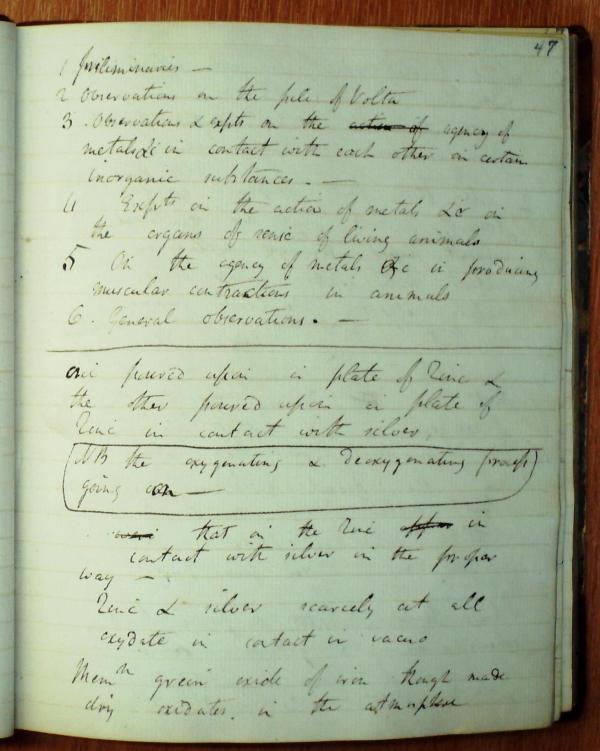 47
1 Preliminaries —
2 Observations on the pile of Volta
3. Observations & expts on the action of agency of
metals &c in contact with each other on certain
inorganic substances. —
4 Expts on the action of metals &c on
the organs of sense of living animals
5 On the agency of metals &c in producing
muscular contractions in animals
6. General observations. —
one poured upon a plate of Zinc &
the other poured upon a plate of
Zinc in contact with silver,
NB the oxygenating & deoxygenating process
going on —
that on the Zinc in
contact with silver in the proper
way —
Zinc & silver scarcely at all
oxydate in contact in vacuo
Mem green oxide of iron though made
dry oxidates in the atmosphere